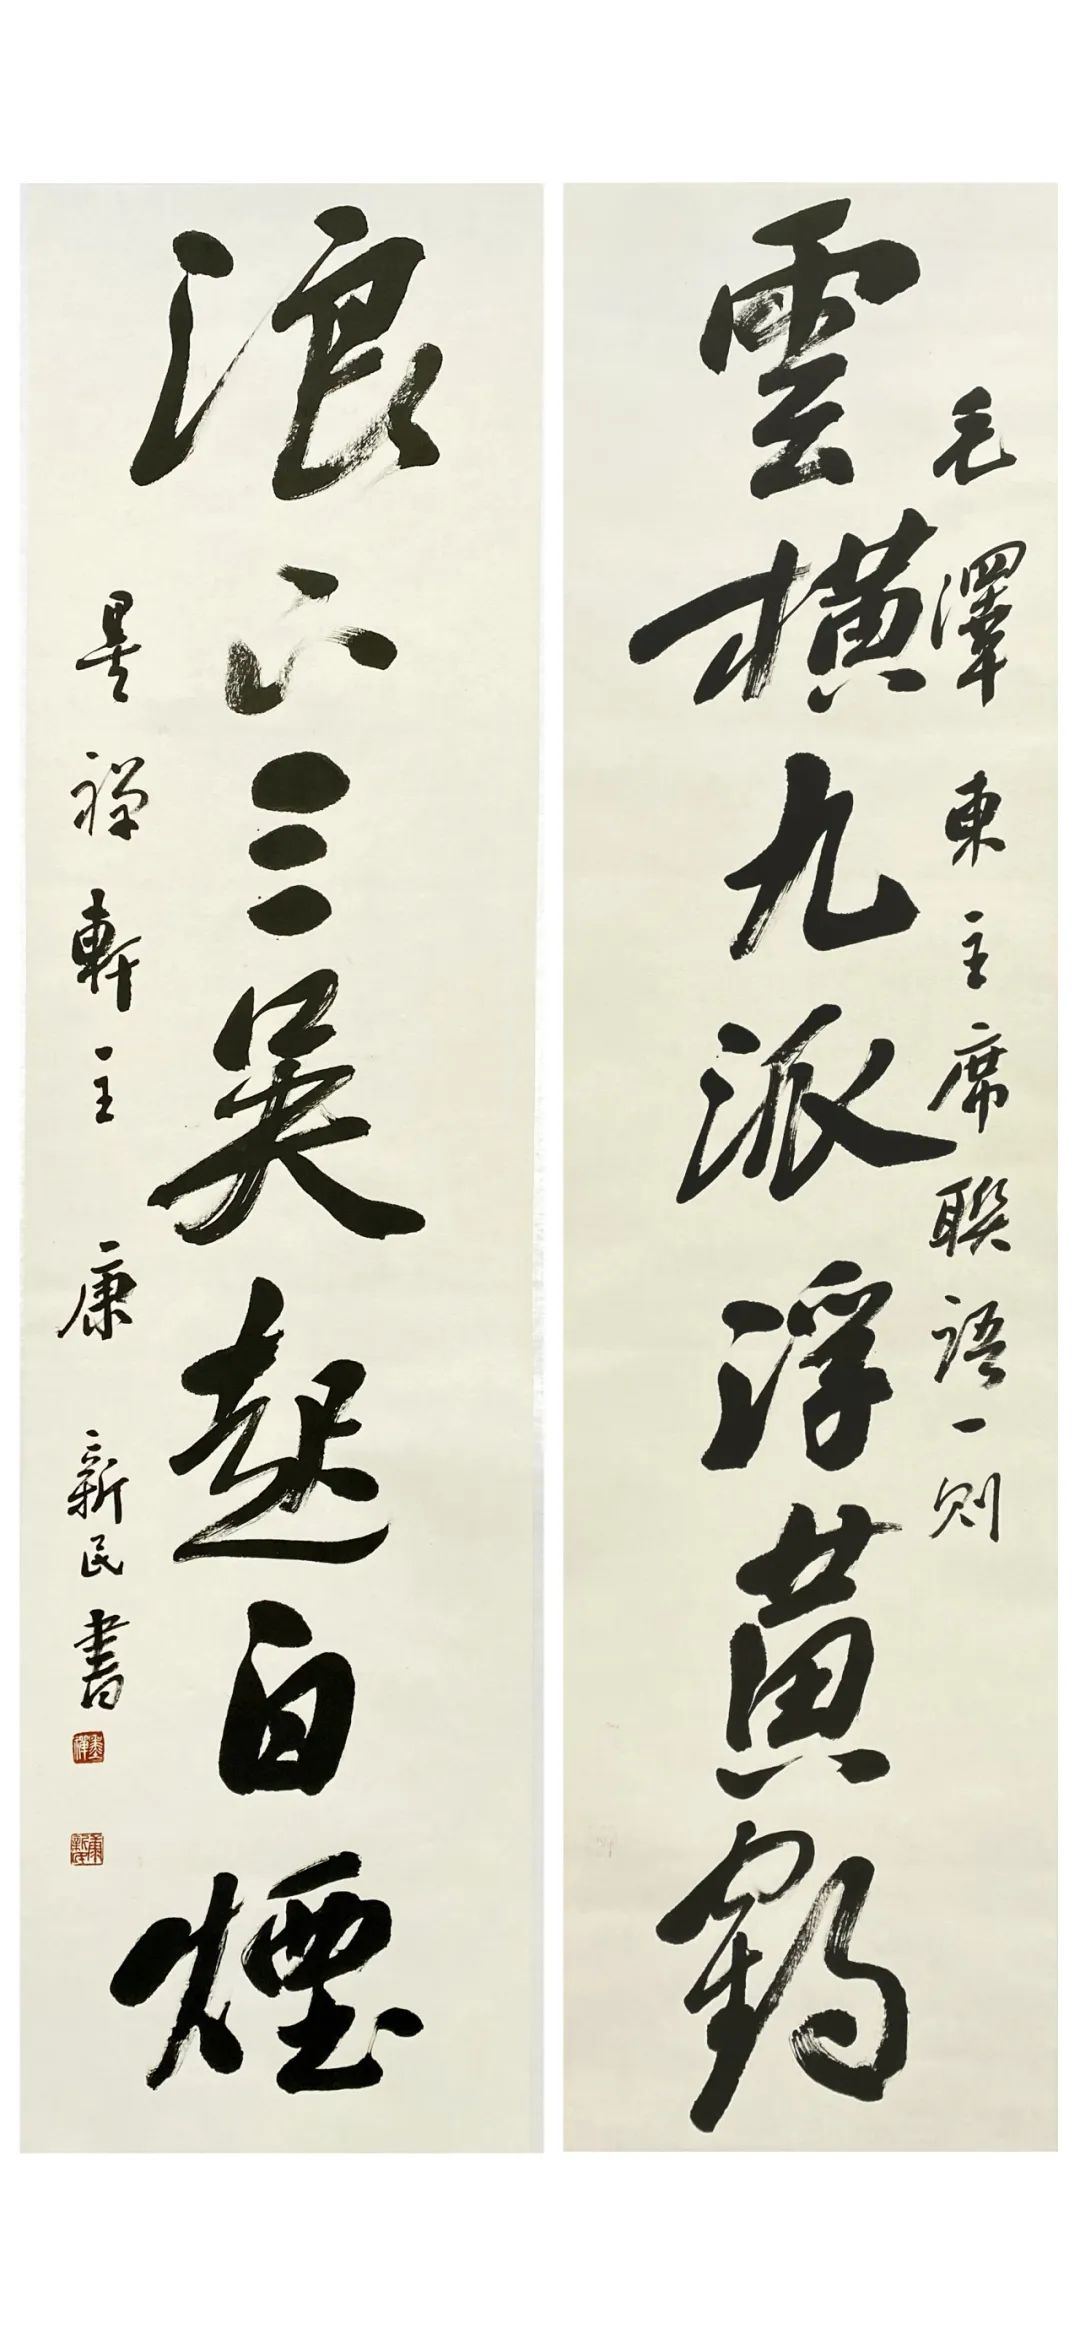 毛澤東主席聯語一則
雲橫九派浮黃鶴
浪下三吳起白煙
墨禪軒主康新民書